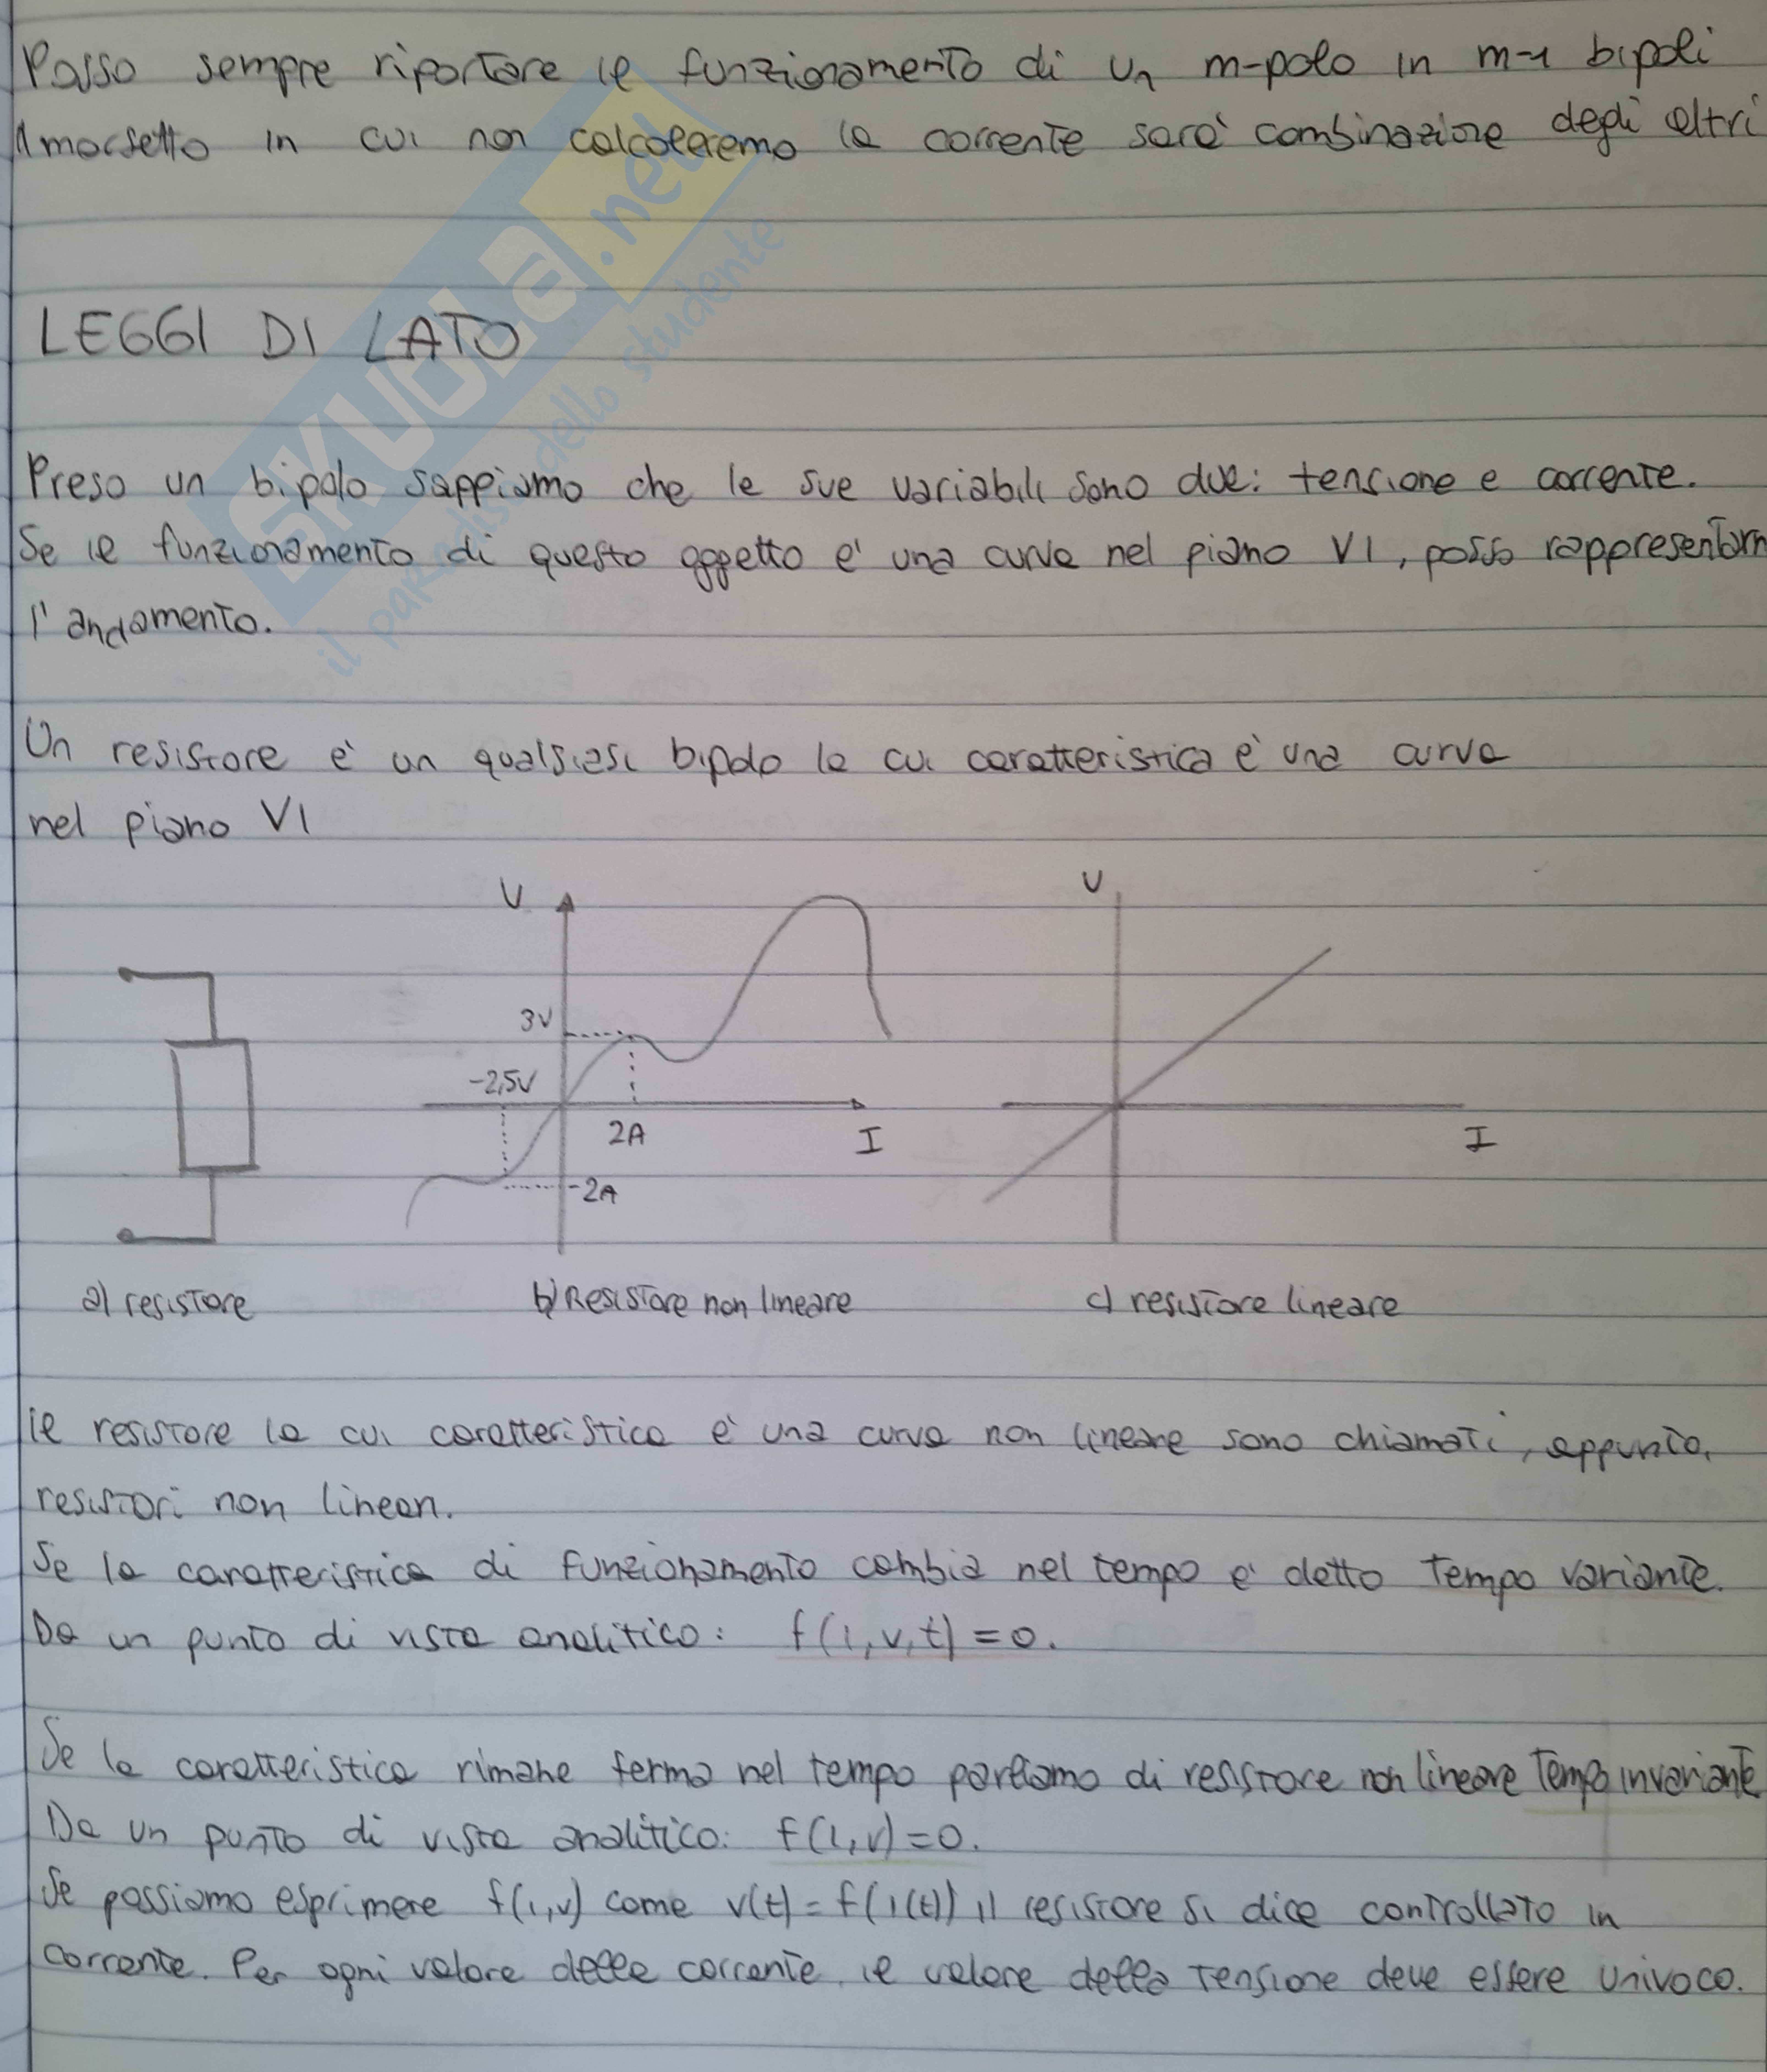 Posso sempre riportare il funzionamento di un m-polo in m-1 bipoli
Il morsetto in cui non calcoleremo la corrente sarà combinazione degli altri
SKUOLA.net
il paradiso dello studente
LEGGI DI LATO
Preso un bipolo sappiamo che le sue variabili sono due: tensione e corrente.
Se il funzionamento di questo oggetto è una curva nel piano VI, posso rappresentarn
l'andamento.
Un resistore è un qualsiasi bipolo la cui caratteristica è una curva
nel piano VI
V
3V
-2,5V
2A
I
-2A
V
I
a) resistore
b) Resistore non lineare
c) resistore lineare
Il resistore la cui caratteristica è una curva non lineare sono chiamati, appunto,
resistori non lineari.
Se la caratteristica di funzionamento cambia nel tempo è detto tempo variante.
Da un punto di vista analitico: f(i,v,t)=0.
Se la caratteristica rimane ferma nel tempo parliamo di resistore non lineare tempo invariante
Da un punto di vista analitico: f(i,v)=0.
Se possiamo esprimere f(i,v) come v(t)=f(i(t)) il resistore si dice controllato in
corrente. Per ogni valore della corrente, il valore della tensione deve essere univoco.